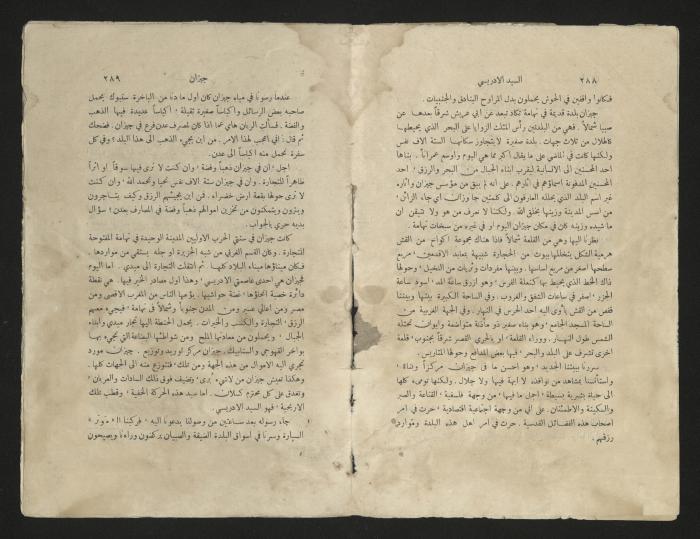 ٢٨٨
السيد الادريسي
فكانوا واقفين في الحوش يحملون بدل المراوح البنادق والجنبيات .
جيزان بلدة قديمة في تهامة تكاد تبعد عن ابي عريش شرقاً بعدها عن
صبيا شمالاً . فهي من البلدتين رأس المثلث الزوايا على البحر الذي يحيطها
كالهلال من ثلاث جهات . بلدة صغيرة لا يتجاوز سكانها الستة الاف نفس
ولكنها كانت في الماضي على ما يقال اكبر مما هي اليوم واوسع عمراناً . بناها
احد المحسنين الى الانسانية ليقرب ابناء الجبال من البحر والرزق ، احد
المحسنين المدفونة اسماؤهم في آثارهم . على انه لم يبق من مؤسس جيزان وآثاره
غير اسم البلد الذي يحلله العارفون الى كلمتين جا وزان اي جاء الزائن
من اسس المدينة وزينها بخلق الله . ولكننا لا نعرف من هو ولا نتيقن ان
ما شيده وزينه كان في مكان جيزان اليوم او في غيره من سبخات تهامة .
نظرنا اليها وهي من القلعة شمالاً فاذا هناك مجموعة اكواخ من القش
هرمية الشكل يتخللها بيوت من الحجارة شبيهة بمعابد الاقدمين ، مربع
سطحها اصغر من مربع اساسها . وبينها مفردات وثريات من النخيل ، وحولها
ذاك الخط الذي يحيط بها كنعلة الفرس ، وهو ازرق ساعة المد ، اسود ساعة
الجزر ، اصفر في ساعات الشفق والغروب . وفي الساحة الكبيرة بيتها وبيتنا
قفص من القش يأوى اليه احد الحرس في النهار . وفي الجهة الغربية من
الساحة المسجد الجامع ، وهو بناء صغير ذو مأذنة متواضعة وايوان تحتله
الشمس طول النهار . ووراء القلعة ، او بالحري القصر شرقاً بجنوب ، قلعة
اخرى تشرف على البلد والبحر ، فيها بعض المدافع وحولها المتاريس .
سررنا ببيتنا الجديد ، وهو احسن ما في جيزان مركزاً وبناء ،
واستأنسنا بمشاهد من نوافذه لا ابهة فيها ولا جلال . ولكنها توميء كلها
الى حياة بشرية بسيطة ، اجمل ما فيها ، من وجهة فلسفية ، القناعة والصبر
والسكينة والاطمئنان . على اني من وجهة اجتماعية اقتصادية ، حرت في امر
اصحاب هذه الفضائل القدسية . حرت في امر اهل هذه البلدة وموارد
رزقهم .
جيزان
٢٨٩
عندما رسونا في مياه جيزان كان اول ما دنا من الباخرة سنبوك يحمل
صاحبه بعض الرسائل واكياساً صغيرة ثقيلة ، اكياساً عديدة فيها الذهب
والفضة . فسألت الربان هاي عما اذا كان لمصرف عدن فرع في جيزان . فضحك
ثم قال : اني اعجب لهذا الامر . من اين يجيء الذهب الى هذا البلد ؟ وفي كل
سفرة نحمل منه اكياساً الى عدن .
اجل ، ان في جيزان ذهباً وفضة ، وان كنت لا ترى فيها سوقاً او اثراً
ظاهراً للتجارة . وان في جيزان ستة الاف نفس تحيا وتحمد الله ، وان كنت
لا ترى حولها بقعة ارض خضراء . فمن اين يجيئهم الرزق وكيف يتاجرون
ويثرون ويتمكنون من تخزين اموالهم ذهباً وفضة في المصارف بعدن ؛ سؤال
بديه حري بالجواب .
كانت جيزان في سنتي الحرب الاوليين المدينة الوحيدة في تهامة المفتوحة
للتجارة . وكان القسم الغربي من شبه الجزيرة او جله يستقي من مواردها .
فكان ميناؤها ميناء البلاد كلها . ثم انتقلت التجارة الى ميدي . اما اليوم
فجيزان هي احدى عاصمتي الادريسي ، وهذا اول مصادر الخير فيها . هي نقطة
دائرة خصبة انحاؤها ، غضة حواشيها . يؤمها الناس من المغرب الاقصى ومن
مصر ومن اعالي عسير ومن المدن جنوباً وشمالاً في تهامة ، فيجيء معهم
الرزق ، التجارة والكسب والخيرات . يحمل الحنطة اليها تجار ميدي وابناء
الجبال ، ويحملون من معادنها الملح ومن شواطئها البضاعة التي تجيء بها
بواخر القهوجي والسنابيك . جيزان مركز توريد وتوزيع . جيزان مورد
تجري اليه الاموال من هذه الجهة ومن تلك ، فتتوزع منه الى الجهات كلها .
وهكذا تعيش جيزان من لا شيء يرى ، وتضيف فوق ذلك السادات والعربان ،
وتغدق على كل محترم كسلان . اما سيد هذه الحركة الخفية ، وقطب تلك
الاريحية ، فهو السيد الادريسي .
جاء رسوله بعد ساعتين من وصولنا يدعونا اليه ، فركبنا الـ « موتر »
السيارة وسرنا في اسواق البلدة الضيقة والصبيان يركضون وراءنا ويصيحون